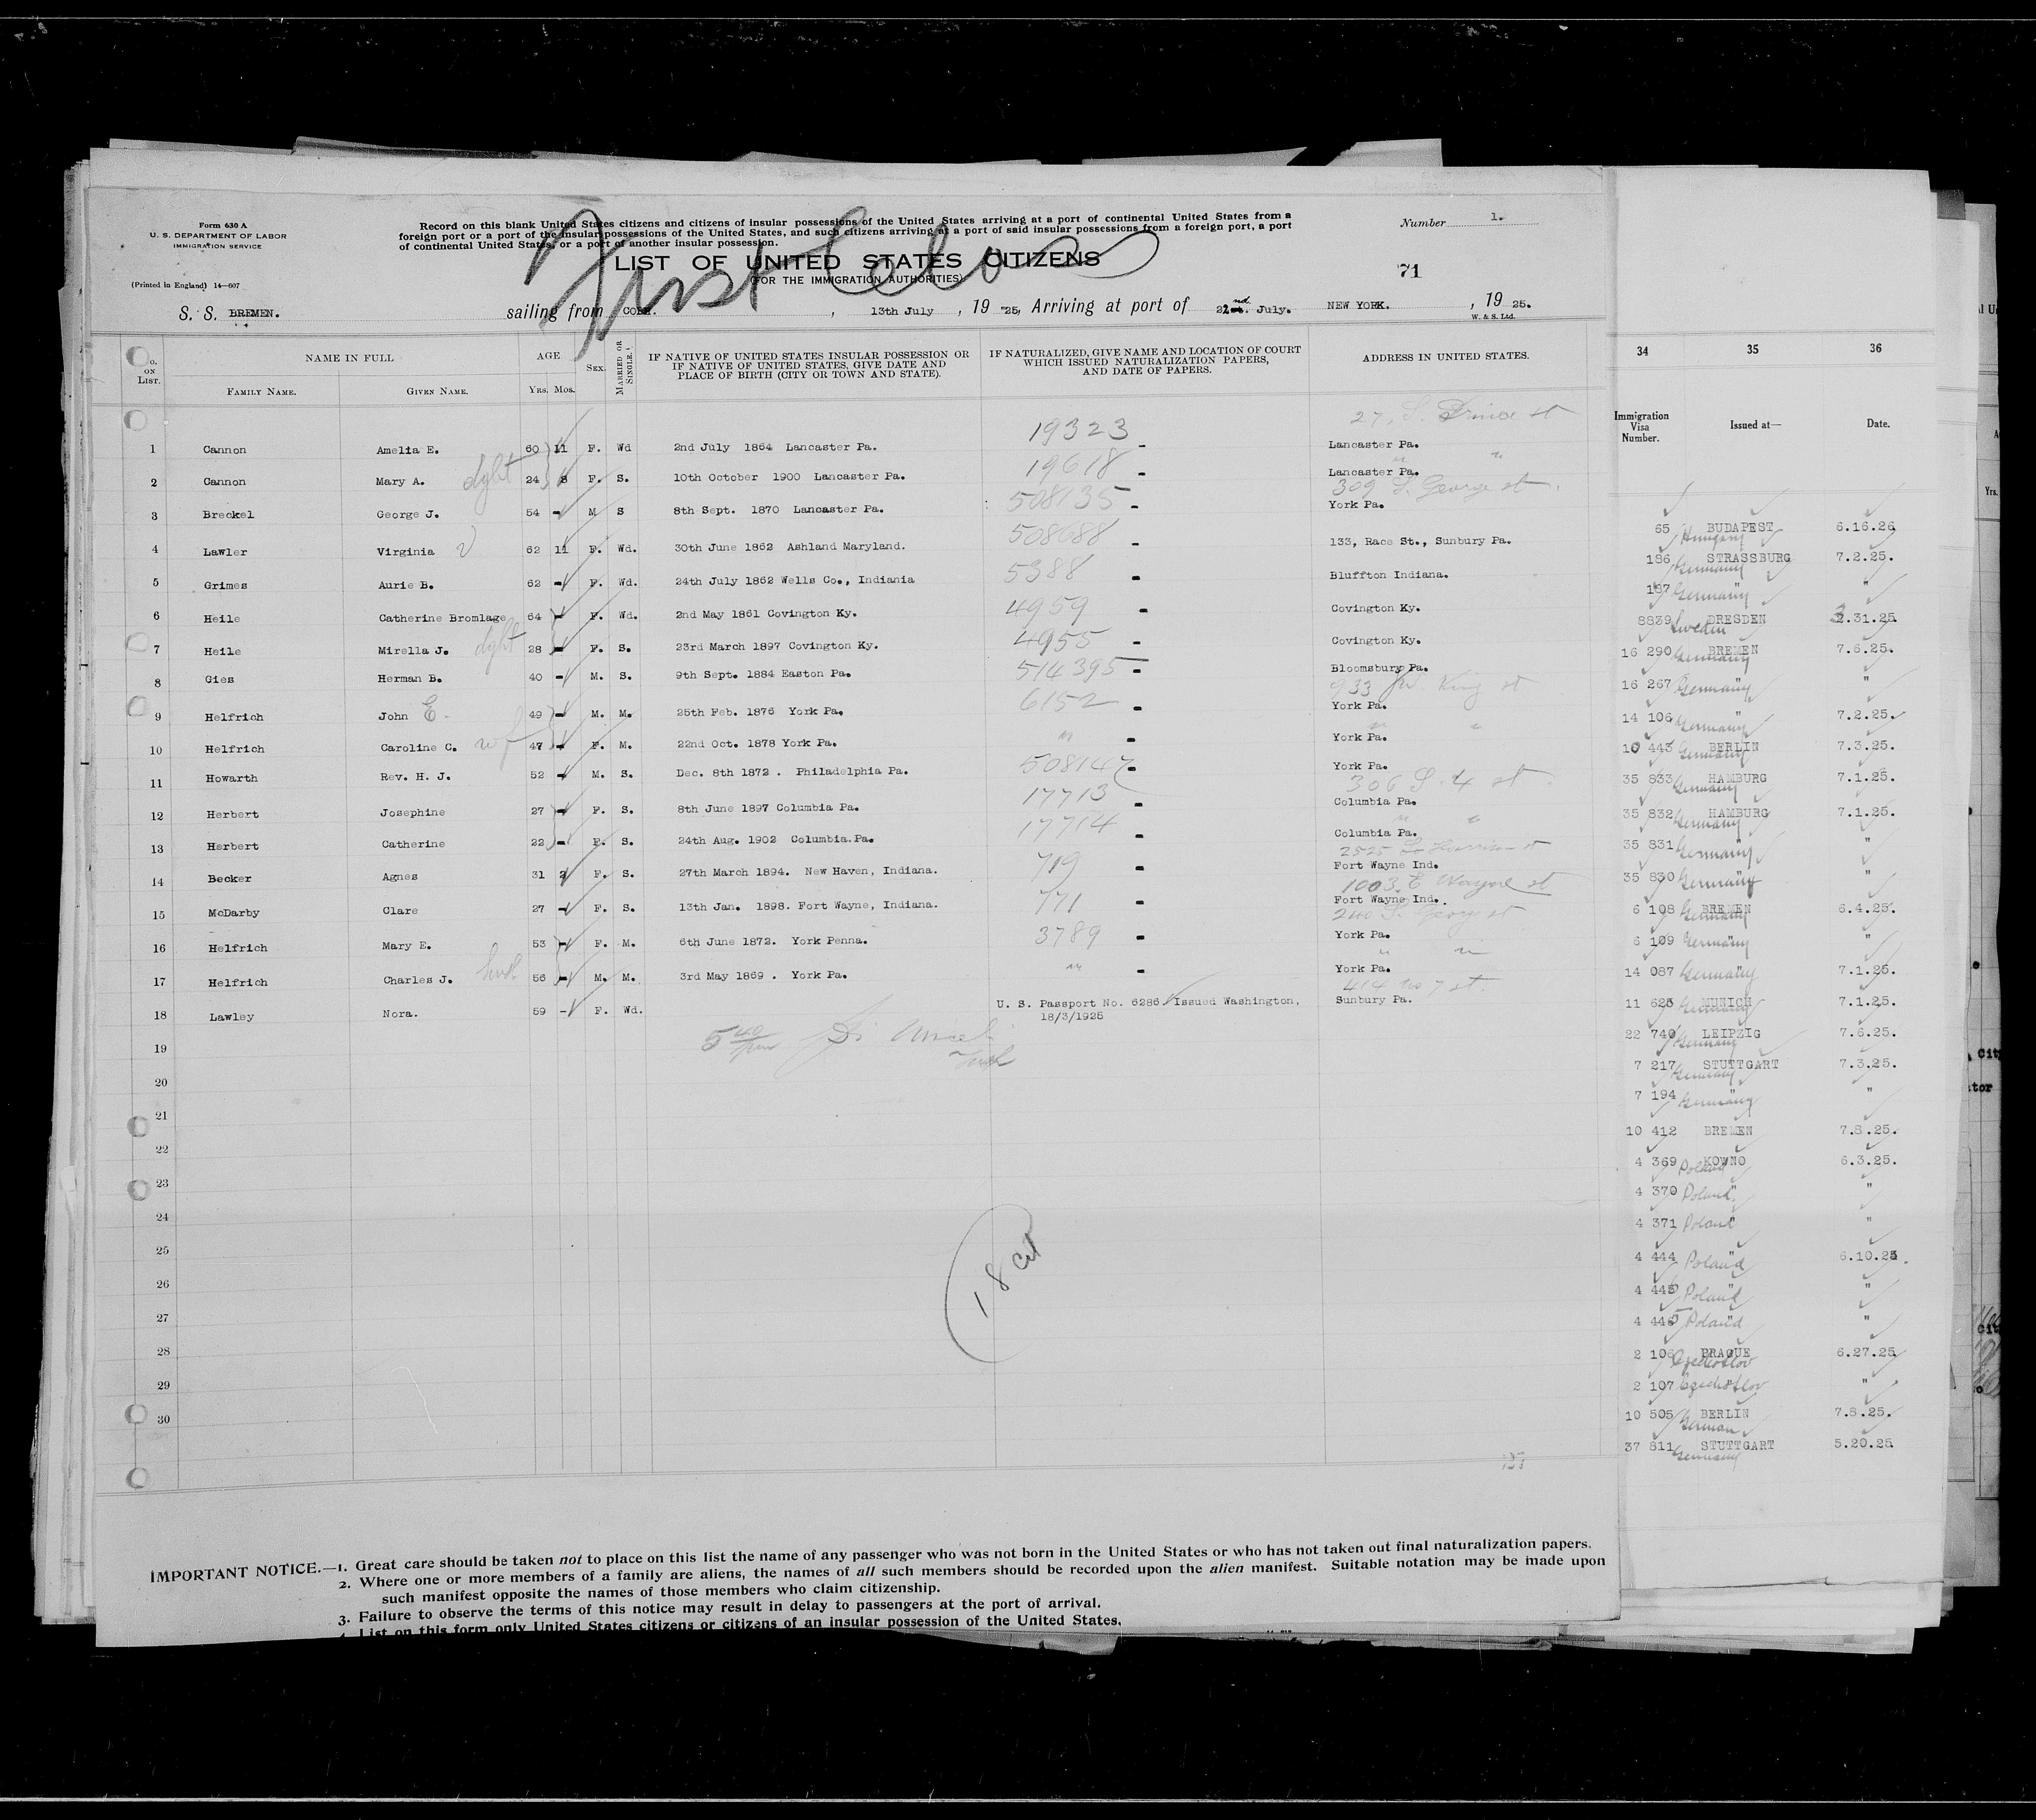 Form 630 A
U. S. DEPARTMENT OF LABOR
IMMIGRATION SERVICE
(Printed in England) 14—607
Record on this blank United States citizens and citizens of insular possessions of the United States arriving at a port of continental United States from a
foreign port or a port of the insular possessions of the United States, and such citizens arriving at a port of said insular possessions from a foreign port, a port
of continental United States, or a port of another insular possession.
Number 1.
First Class
LIST OF UNITED STATES CITIZENS
(FOR THE IMMIGRATION AUTHORITIES)
71
S. S. BREMEN. sailing from COBH. , 13th July , 19 25, Arriving at port of 22nd. July. NEW YORK. , 19 25.
W. & S. Ltd.
No. ON LIST.
NAME IN FULL
FAMILY NAME. GIVEN NAME.
AGE
YRS. MOS.
SEX.
MARRIED OR SINGLE.
IF NATIVE OF UNITED STATES INSULAR POSSESSION OR
IF NATIVE OF UNITED STATES, GIVE DATE AND
PLACE OF BIRTH (CITY OR TOWN AND STATE).
IF NATURALIZED, GIVE NAME AND LOCATION OF COURT
WHICH ISSUED NATURALIZATION PAPERS,
AND DATE OF PAPERS.
ADDRESS IN UNITED STATES.
1 Cannon Amelia E. 60 11 F. Wd 2nd July 1864 Lancaster Pa. 19323 - Lancaster Pa.
2 Cannon Mary A. dght 24 8 F. S. 10th October 1900 Lancaster Pa. 19618 - Lancaster Pa. " "
309 S. George st.
3 Breckel George J. 54 - M S 8th Sept. 1870 Lancaster Pa. 508135 - York Pa.
4 Lawler Virginia 62 11 F. Wd. 30th June 1862 Ashland Maryland. 508688 - 133, Race St., Sunbury Pa.
5 Grimes Aurie B. 62 - F. Wd. 24th July 1862 Wells Co., Indiania 5388 - Bluffton Indiana.
6 Heile Catherine Bromlage 64 - F. Wd. 2nd May 1861 Covington Ky. 4959 - Covington Ky.
7 Heile Mirella J. dght 28 - F. S. 23rd March 1897 Covington Ky. 4955 - Covington Ky.
8 Gies Herman B. 40 - M. S. 9th Sept. 1884 Easton Pa. 514395 - Bloomsbury Pa.
933 W. King st
9 Helfrich John E. 49 - M. M. 25th Feb. 1876 York Pa. 6152 - York Pa.
10 Helfrich Caroline C. wf 47 - F. M. 22nd Oct. 1878 York Pa. " - York Pa. " "
11 Howarth Rev. H. J. 52 - M. S. Dec. 8th 1872. Philadelphia Pa. 508147 - York Pa.
306 S. 4 st
12 Herbert Josephine 27 - F. S. 8th June 1897 Columbia Pa. 17713 - Columbia Pa.
13 Herbert Catherine 22 - F. S. 24th Aug. 1902 Columbia.Pa. 17714 - Columbia Pa. " "
14 Becker Agnes 31 2 F. S. 27th March 1894. New Haven, Indiana. 719 - Fort Wayne Ind.
1003 E Wayne st
15 McDarby Clare 27 - F. S. 13th Jan. 1898. Fort Wayne, Indiana. 771 - Fort Wayne Ind.
240 S. George st
16 Helfrich Mary E. 53 - F. M. 6th June 1872. York Penna. 3789 - York Pa.
17 Helfrich Charles J. husb 56 - M. M. 3rd May 1869. York Pa. " - York Pa. " "
414 No 7 st.
18 Lawley Nora. 59 - F. Wd. U. S. Passport No. 6286 Issued Washington, 18/3/1925 Sunbury Pa.
19
20
21
22
23
24
25
26
27
28
29
30
18 Cit
IMPORTANT NOTICE.—1. Great care should be taken not to place on this list the name of any passenger who was not born in the United States or who has not taken out final naturalization papers.
2. Where one or more members of a family are aliens, the names of all such members should be recorded upon the alien manifest. Suitable notation may be made upon
such manifest opposite the names of those members who claim citizenship.
3. Failure to observe the terms of this notice may result in delay to passengers at the port of arrival.
4. List on this form only United States citizens or citizens of an insular possession of the United States.
34 35 36
Immigration Visa Number. Issued at— Date.
65 BUDAPEST Hungary 6.16.26
186 STRASSBURG Germany 7.2.25.
187 Germany " "
8839 DRESDEN Sweden 2.31.25
16 290 BREMEN Germany 7.6.25.
16 267 Germany " "
14 106 Germany " 7.2.25.
10 443 BERLIN Germany 7.3.25.
35 833 HAMBURG Germany 7.1.25.
35 832 HAMBURG Germany 7.1.25.
35 831 Germany " "
35 830 Germany " "
6 108 BREMEN Germany 6.4.25.
6 109 Germany " "
14 087 Germany " 7.1.25.
11 625 MUNICH Germany 7.1.25.
22 740 LEIPZIG Germany 7.6.25.
7 217 STUTTGART Germany 7.3.25.
7 194 Germany " "
10 412 BREMEN 7.8.25.
4 369 KOWNO Poland 6.3.25.
4 370 Poland " "
4 371 Poland " "
4 444 Poland " 6.10.25.
4 445 Poland " "
4 446 Poland " "
2 106 PRAGUE Czechoslov 6.27.25
2 107 Czechoslov " "
10 505 BERLIN German 7.8.25.
37 811 STUTTGART Germany 5.20.25